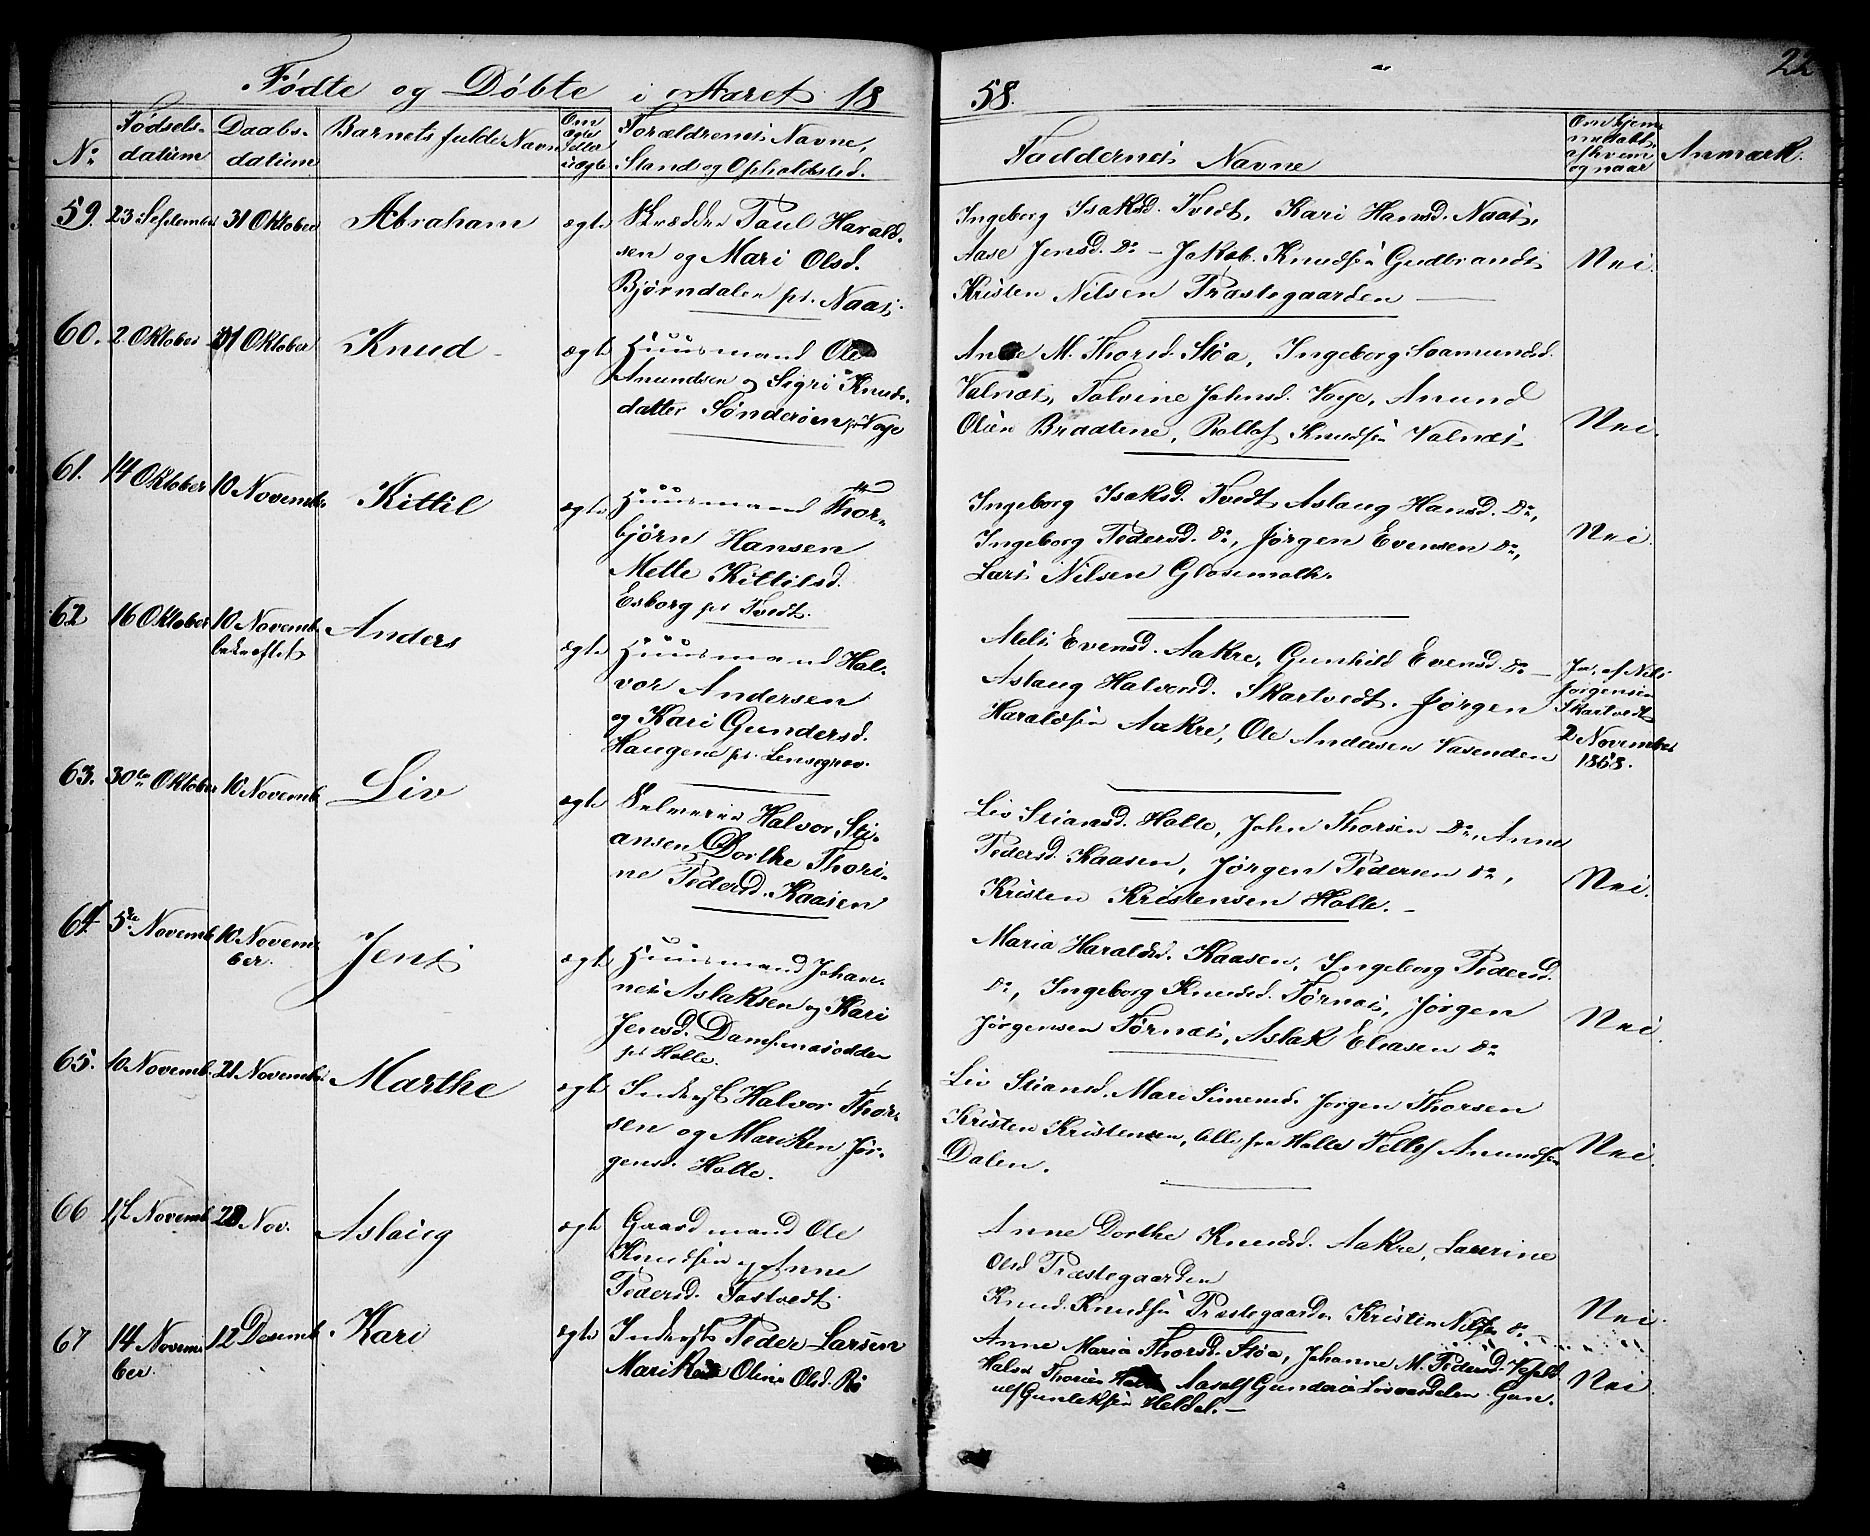 Fødte og Døbte i Aaret 18
58.
22
No
Fødsels-
datum
Daabs-
datum
Barnets fulde Navn
Om
ægte
eller
uægte
Forældrenes Navne,
Stand og Opholdssted.
Faddernes Navne
Om hjem-
medøbt,
af hvem
og naar
Anmærk.
59. 23 September 31 Oktober Abraham ægte Skrædder Paul Harald-
sen og Mari Olsd.
Bjørndalen pr. Naas.
Ingeborg Isaksd. Tvedt, Kari Hansd. Naas,
Aase Jensd. do — Jakob Knudsen Gudbrands
Kristen Nilsen Præstegaarden
Nei.
60. 2 Oktober 31 Oktober Knud ægte Huusmand Ole
Anundsen og Sigri Knuds-
datter Sønderøen pr Voje
Anne M. Thorsd. Støa, Ingeborg Svamundsd.
Valnæs, Tolvine Johnsd. Voje, Anund
Olsen Braatene, Rollef Knudsen Valnæs
Nei.
61. 14 Oktober 10 Novembr. Kittil ægte Huusmand Thor-
bjørn Hansen
Mette Kittilsd.
Esborg pr Tvedt.
Ingeborg Isaksd. Tvedt, Aslaug Hansd. do,
Ingeborg Pedersd. do, Jørgen Evensen do,
Lars Nilsen Glosemoth.
Nei.
62 16 Oktober 10 Novemb.
bekræftet
Anders ægte Huusmand Hal-
vor Andersen
og Kari Gundersd.
Haugene pr. Lensegrav.
Mels Evensd. Aakre, Gunhild Evensd. do —
Aslaug Halvorsd. Skartvedt. Jørgen
Haraldsen Aakre, Ole Andersen Vasenden
Ja, af Nils
Jørgensen
Skartvedt
2 November
1858.
63. 30te Oktober 10 Novemb. Liv ægte Selveier Halvor Sti-
ansen Dorthe Thori-
ne Pedersd. Kaasen
Liv Stiansd. Holte, John Thorsen do, Anne
Pedersd. Kaasen, Jørgen Pedersen do,
Kristen Kristensen Holte. —
Nei.
64. 5te Novemb. 10 Novem-
ber.
Jens ægte Huusmand Johan-
nes Aslaksen og Kari
Jensd. Damsmasodden
pr Holte.
Maria Haraldsd. Kaasen, Ingeborg Pedersd.
do, Ingeborg Knudsd. Tørnæs, Jørgen
Jørgensen Tørnæs, Aslak Eliasen do
Nei.
65. 10 Novemb. 21 November Marthe ægte Inderst Halvor Thor-
sen og Mariken Jør-
gensd. Holte.
Liv Stiansd. Mari Simensd. Jørgen Thorsen
Kristen Kristensen, alle fra Holte Tellef Anundsen
Dalen.
Nei.
66 Novemb. Nov. Aslaug ægte Gaardmand Ole
Knudsen og Anne
Pedersd. Tostvedt
Anne Dorthe Knudsd. Aakre, Laurine
Olsd Præstegaarden
Knud Knudsen Præstegaarden Kristen Nilsen do —
Nei.
67 14 Novem-
ber.
12 Desemb. Kari ægte Inderst Peder Larsen
Mari Oline Olsd. Rø
Anne Maria Thorsd. Støa, Johanne M. Pedersd.
Halvor Thorsen Aasolf Gundersen Gun-
ulf Gunleksen Heldal. —
Nei.